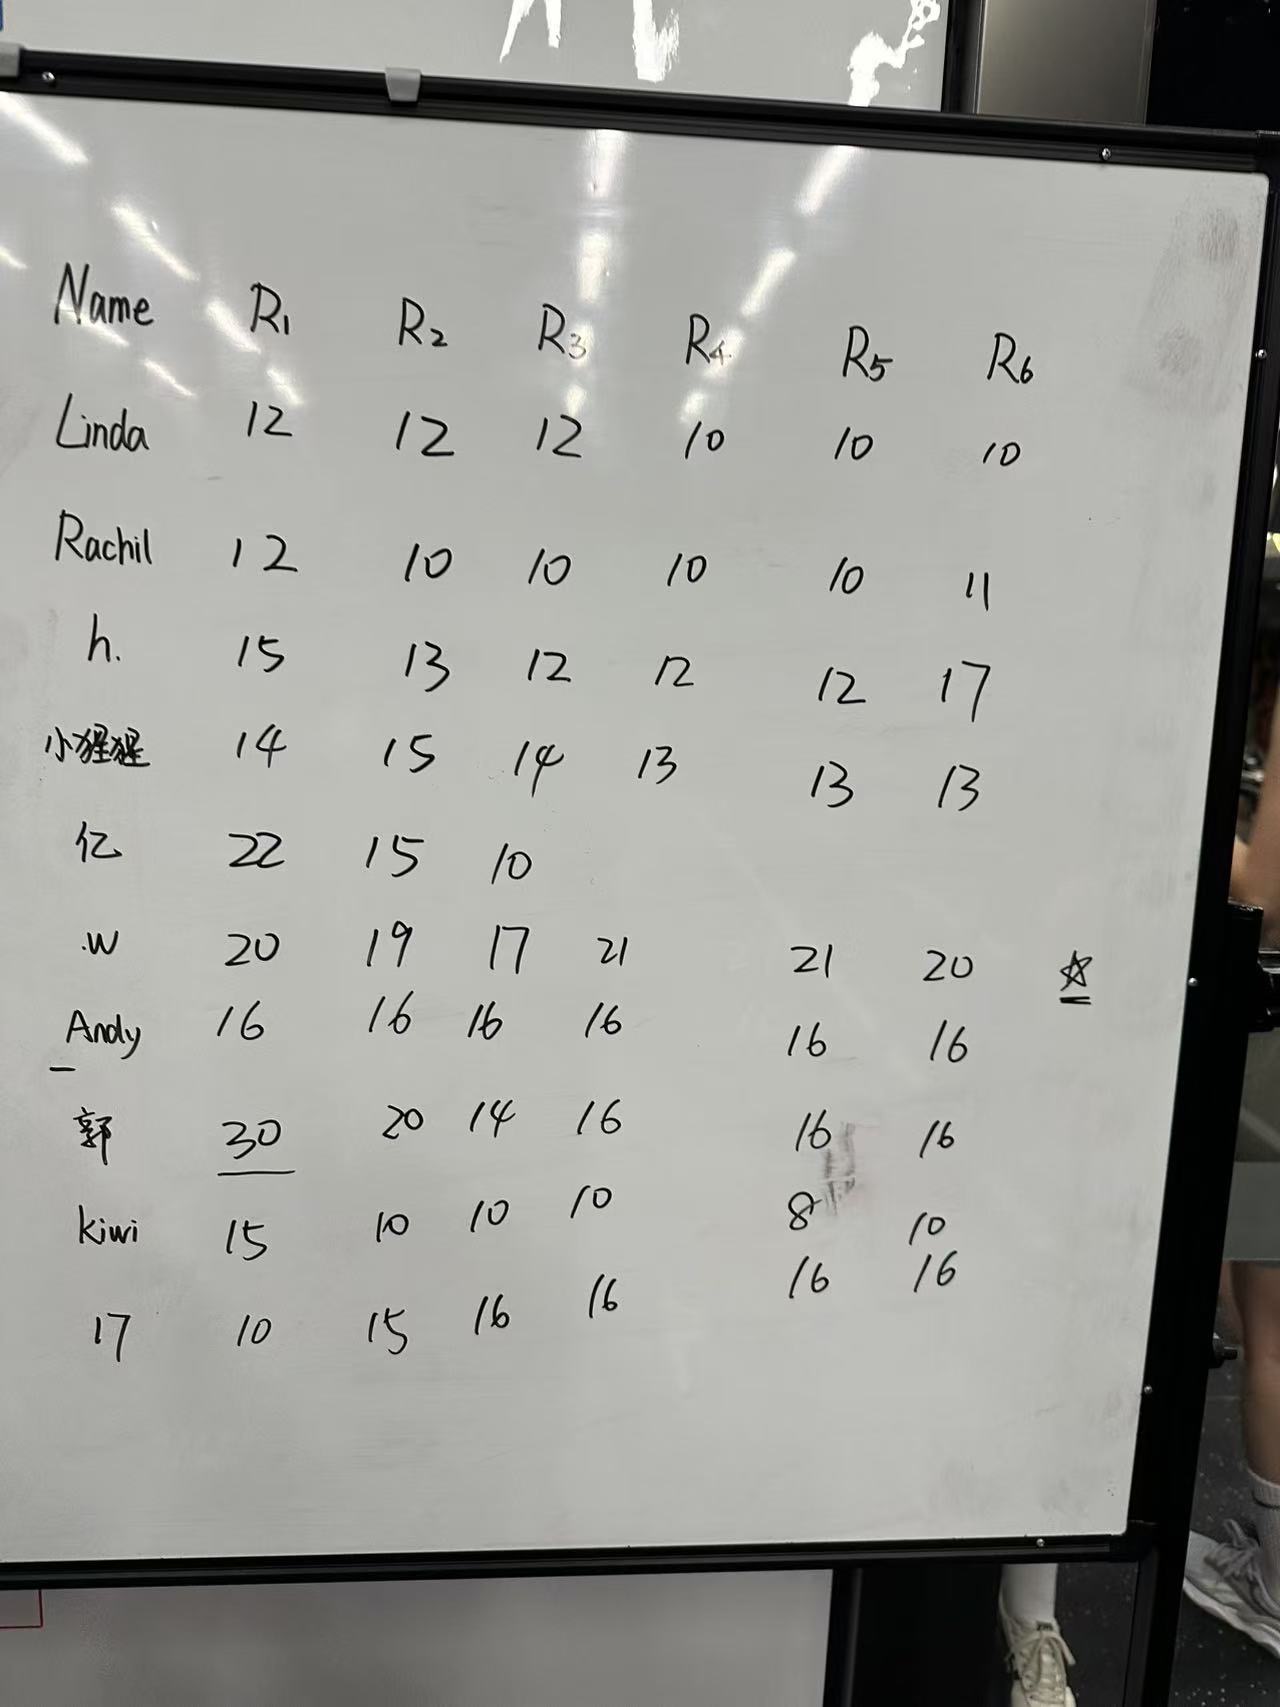 Name R1 R2 R3 R4 R5 R6
Linda 12 12 12 10 10 10
Rachil 12 10 10 10 10 11
h. 15 13 12 12 12 17
小猩猩 14 15 14 13 13 13
亿 22 15 10
.W 20 19 17 21 21 20
Andy 16 16 16 16 16 16
郭 30 20 14 16 16 16
kiwi 15 10 10 10 8 10
17 10 15 16 16 16 16